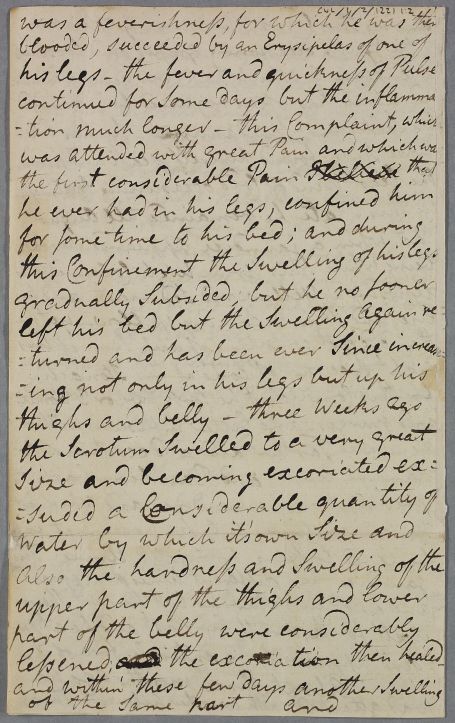 CUL/4/2/22/12
was a feverishness, for which he was then
blooded, succeeded by an Erysipelas of one of
his legs - the fever and quickness of Pulse
continued for some days but the inflamma
=tion much longer - this Complaint, which
was attended with great Pain and which was
the first considerable Pain that
he ever had in his legs, confined him
for some time to his bed; and during
this Confinement the Swelling of his legs
gradually Subsided, but he no sooner
left his bed but the Swelling again re
=turned and has been ever Since increas=
=ing not only in his legs but up his
thighs and belly - three Weeks ago
the Scrotum Swelled to a very great
Size and becoming excoriated ex=
=suded a Considerable quantity of
water by which it's own Size and
also the hardness and Swelling of the
upper part of the thighs and lower
part of the belly were considerably
lessened, the excoriation then healed
and within these few days another Swelling
of the same part and